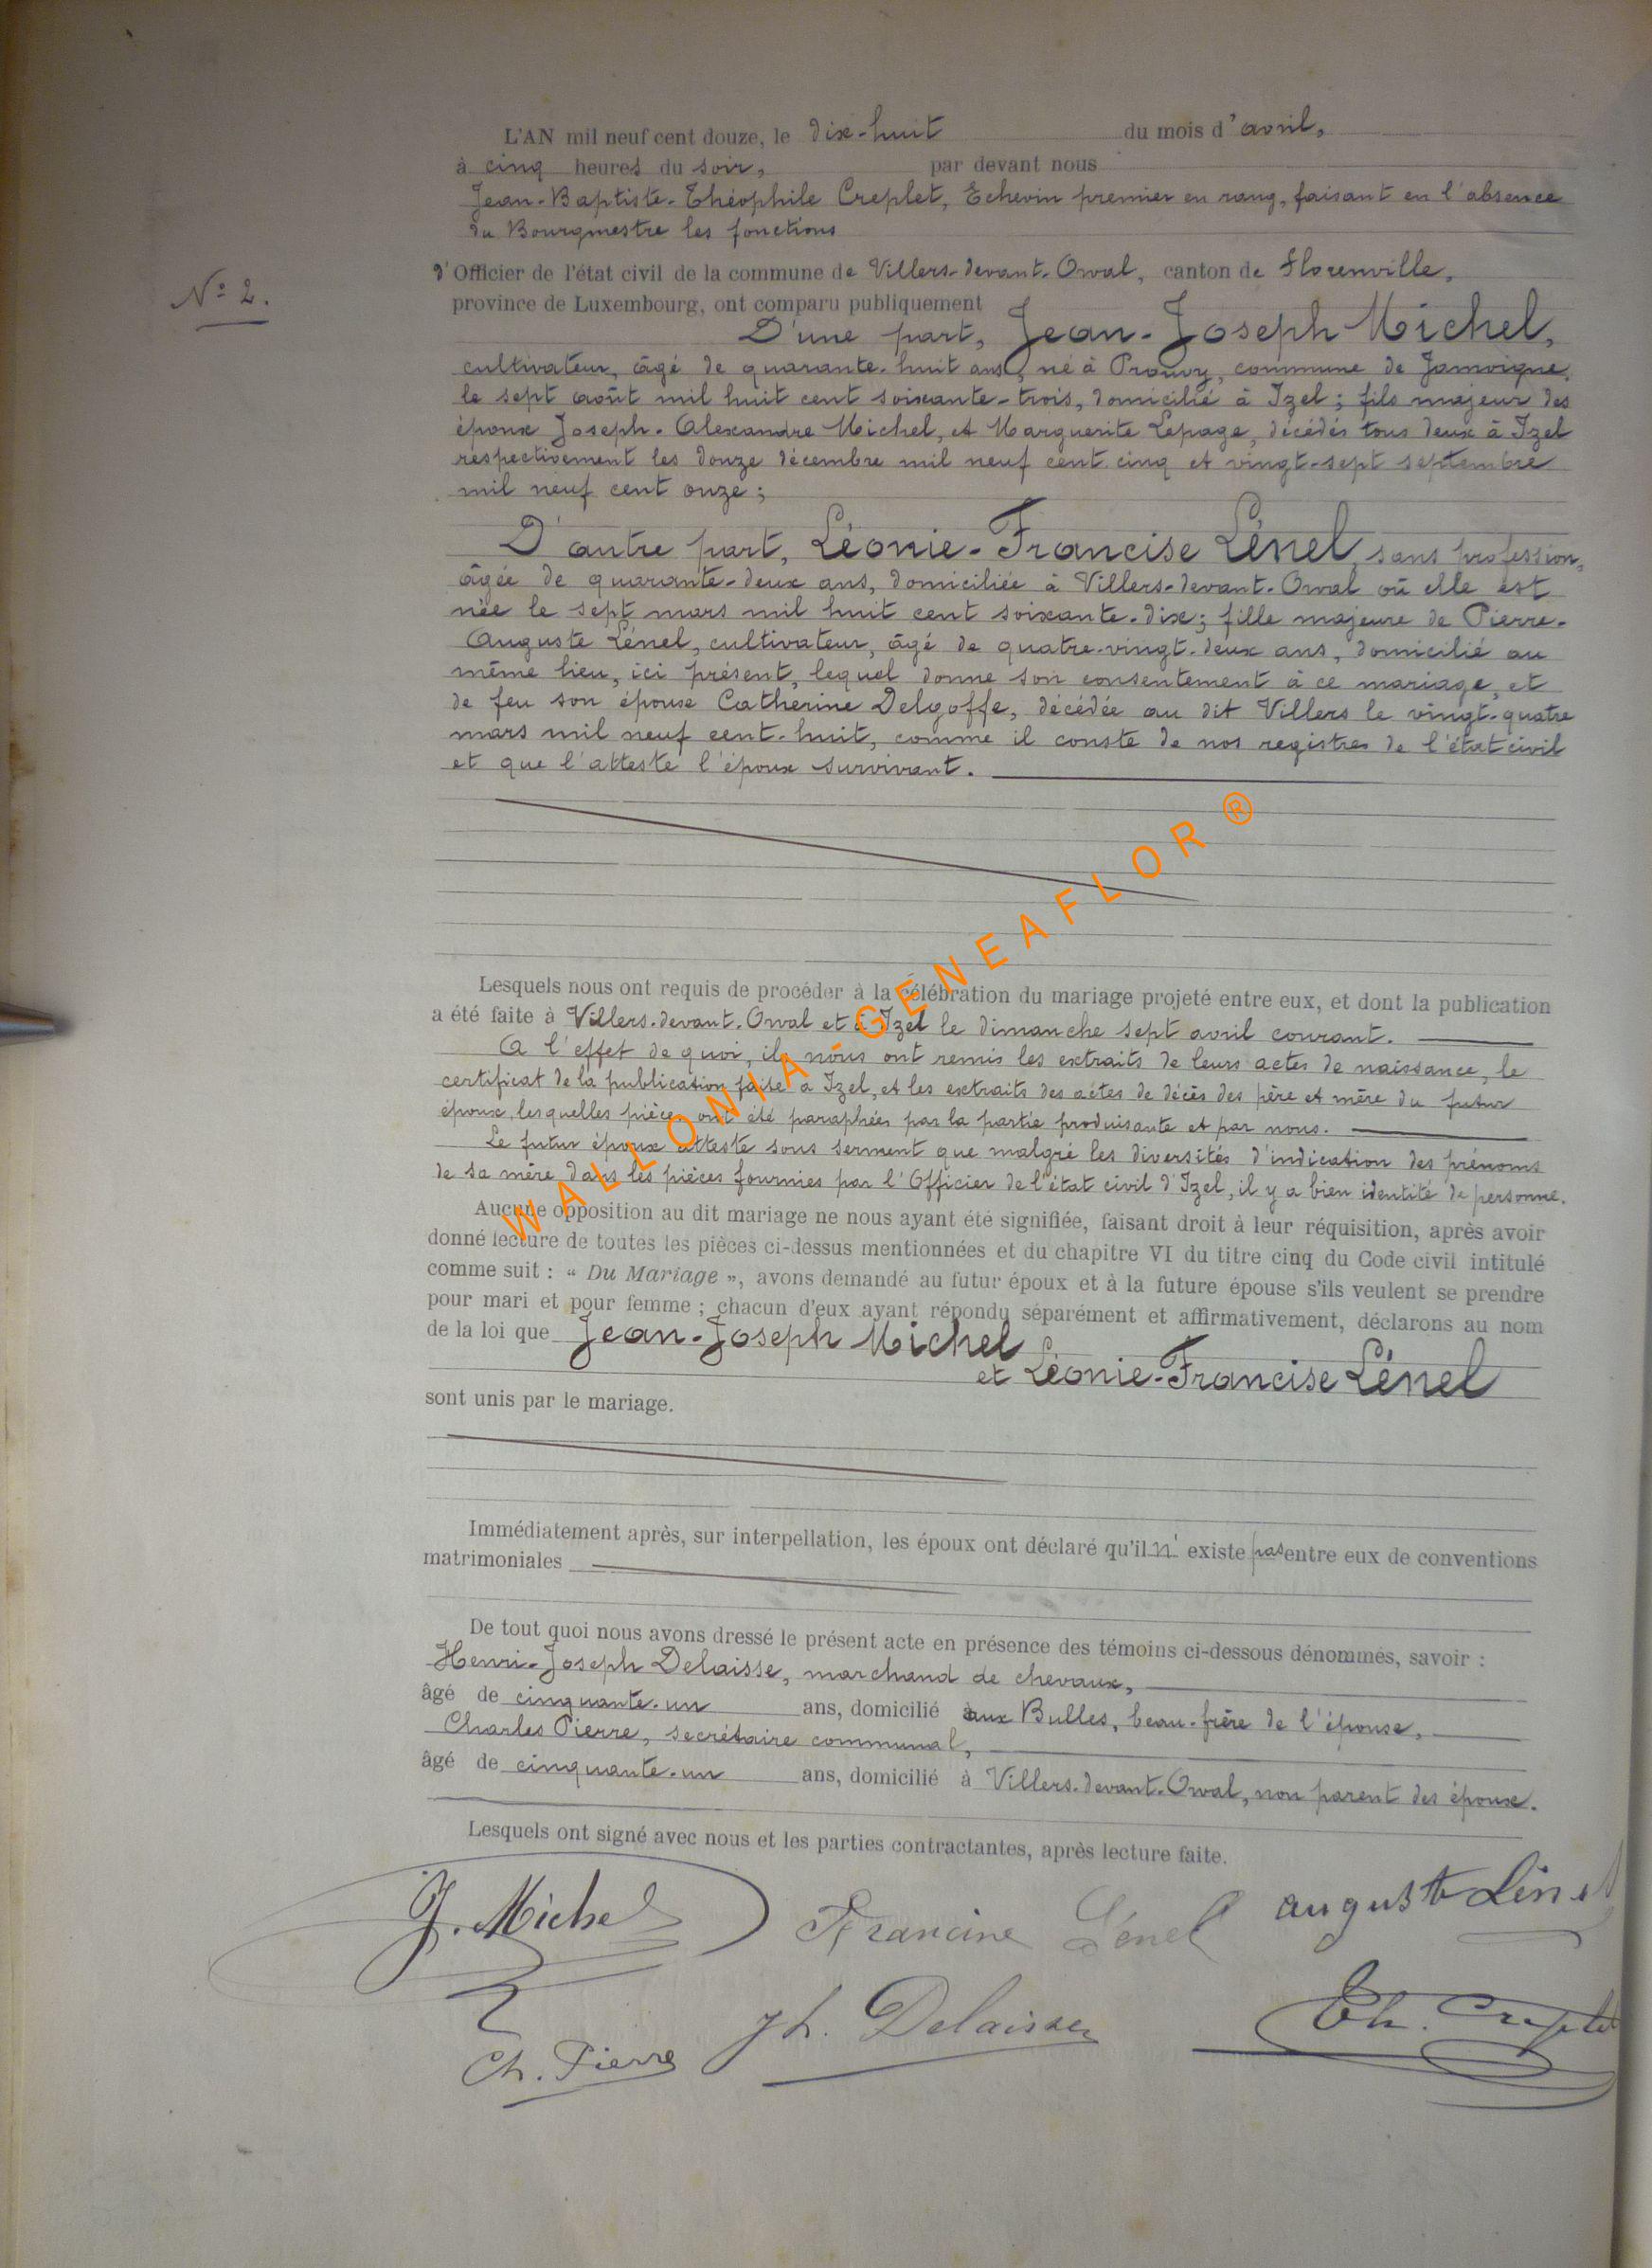 L'AN mil neuf cent douze, le dix-huit du mois d'avril,
à cinq heures du soir, par devant nous
Jean-Baptiste-Théophile Creplet, Echevin premier en rang, faisant en l'absence
du Bourgmestre les fonctions
d'Officier de l'état civil de la commune de Villers-devant-Orval, canton de Florenville,
N° 2.
province de Luxembourg, ont comparu publiquement
D'une part, Jean-Joseph Michel,
cultivateur, âgé de quarante-huit ans, né à Prouvy, commune de Jamoigne,
le sept août mil huit cent soixante-trois, domicilié à Izel; fils majeur des
époux Joseph-Alexandre Michel, et Marguerite Lepage, décédés tous deux à Izel
respectivement les douze décembre mil neuf cent cinq et vingt-sept septembre
mil neuf cent onze;
D'autre part, Léonie-Francise Lénel, sans profession,
âgée de quarante-deux ans, domiciliée à Villers-devant-Orval où elle est
née le sept mars mil huit cent soixante-dix; fille majeure de Pierre-
Auguste Lénel, cultivateur, âgé de quatre-vingt-deux ans, domicilié au
même lieu, ici présent, lequel donne son consentement à ce mariage, et
de feu son épouse Catherine Delgoffe, décédée au dit Villers le vingt-quatre
mars mil neuf cent-huit, comme il conste de nos registres de l'état civil
et que l'atteste l'époux survivant.
WALLONIA-GENEAFLOR®
Lesquels nous ont requis de procéder à la célébration du mariage projeté entre eux, et dont la publication
a été faite à Villers-devant-Orval et à Izel le dimanche sept avril courant.
A l'effet de quoi, ils nous ont remis les extraits de leurs actes de naissance, le
certificat de la publication faite à Izel, et les extraits des actes de décès des père et mère du futur
époux, lesquelles pièces ont été paraphées par la partie produisante et par nous.
Le futur époux atteste sous serment que malgré les diversités d'indication des prénoms
de sa mère dans les pièces fournies par l'Officier de l'état civil d'Izel, il y a bien identité de personne.
Aucune opposition au dit mariage ne nous ayant été signifiée, faisant droit à leur réquisition, après avoir
donné lecture de toutes les pièces ci-dessus mentionnées et du chapitre VI du titre cinq du Code civil intitulé
comme suit : « Du Mariage », avons demandé au futur époux et à la future épouse s'ils veulent se prendre
pour mari et pour femme ; chacun d'eux ayant répondu séparément et affirmativement, déclarons au nom
de la loi que Jean-Joseph Michel
et Léonie-Francise Lénel
sont unis par le mariage.
Immédiatement après, sur interpellation, les époux ont déclaré qu'il n'existe pas entre eux de conventions
matrimoniales
De tout quoi nous avons dressé le présent acte en présence des témoins ci-dessous dénommés, savoir :
Henri-Joseph Delaisse, marchand de chevaux,
âgé de cinquante-un ans, domicilié aux Bulles, beau-frère de l'épouse,
Charles Pierre, secrétaire communal,
âgé de cinquante-un ans, domicilié à Villers-devant-Orval, non parent des époux.
Lesquels ont signé avec nous et les parties contractantes, après lecture faite.
J. Michel Francine Lénel auguste Lénel
Ch. Pierre Jh. Delaisse Th. Creplet